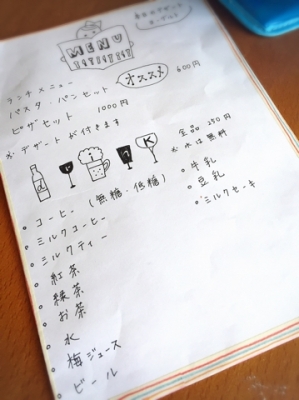 MENU
ランチメニュー
オススメ
パスタ・パンセット 600円
ピザセット 1000円
※デザートが付きます
ドリンク
全品 250円
※水は無料
・コーヒー (無糖・低糖)
・ミルクコーヒー
・ミルクティー
・紅茶
・緑茶
・お茶
・水
・梅ジュース
・ビール
・牛乳
・豆乳
・ミルクセーキ